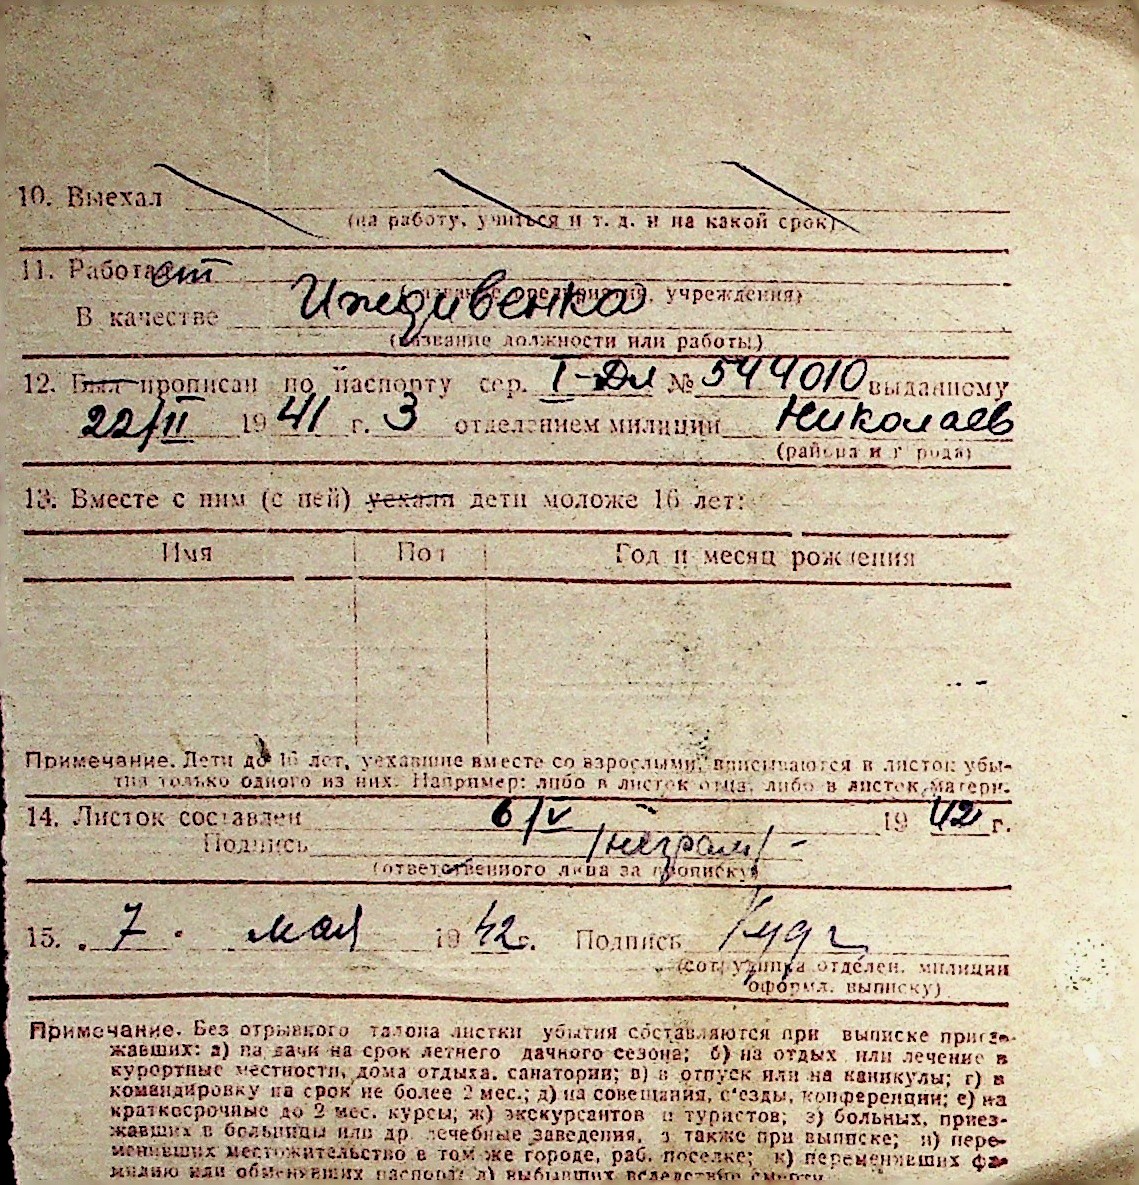 10. Выехал
(на работу, учиться и т. д. и на какой срок)
11. Работает
(название предприятия, учреждения)
В качестве Иждивенка
(название должности или работы)
12. Был прописан по паспорту сер. I-Дл № 544010 выданному
22/II 1941 г. 3 отделением милиции Николаев
(района и города)
13. Вместе с ним (с ней) уехали дети моложе 16 лет:
Имя Пол Год и месяц рождения
Примечание. Дети до 16 лет, уехавшие вместе со взрослыми, вписываются в листок убы-
тия только одного из них. Например: либо в листок отца, либо в листок матери.
14. Листок составлен 6/V 1942 г.
Подпись /неграм/ -
(ответственного лица за прописку)
15. 7 мая 1942 г. Подпись
(сотрудника отделен. милиции
оформл. выписку)
Примечание. Без отрывного талона листки убытия составляются при выписке приез-
жавших: а) на дачи на срок летнего дачного сезона; б) на отдых или лечение в
курортные местности, дома отдыха, санатории; в) в отпуск или на каникулы; г) в
командировку на срок не более 2 мес.; д) на совещания, с'езды, конференции; е) на
краткосрочные до 2 мес. курсы; ж) экскурсантов и туристов; з) больных, приез-
жавших в больницы или др лечебные заведения, а также при выписке; и) пере-
менивших местожительство в том же городе, раб. поселке; к) переменивших фа-
милию или обменявших паспорт; л) выбывших вследствие смерти.